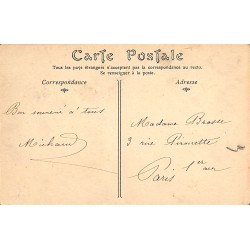 Carte Postale
Tous les pays étrangers n'acceptent pas la correspondance au recto.
Se renseigner à la poste.
Correspondance
Adresse
Bon souvenir à tous
Michaud
Madame Brosse
3 rue Pirouette
Paris 1er arr